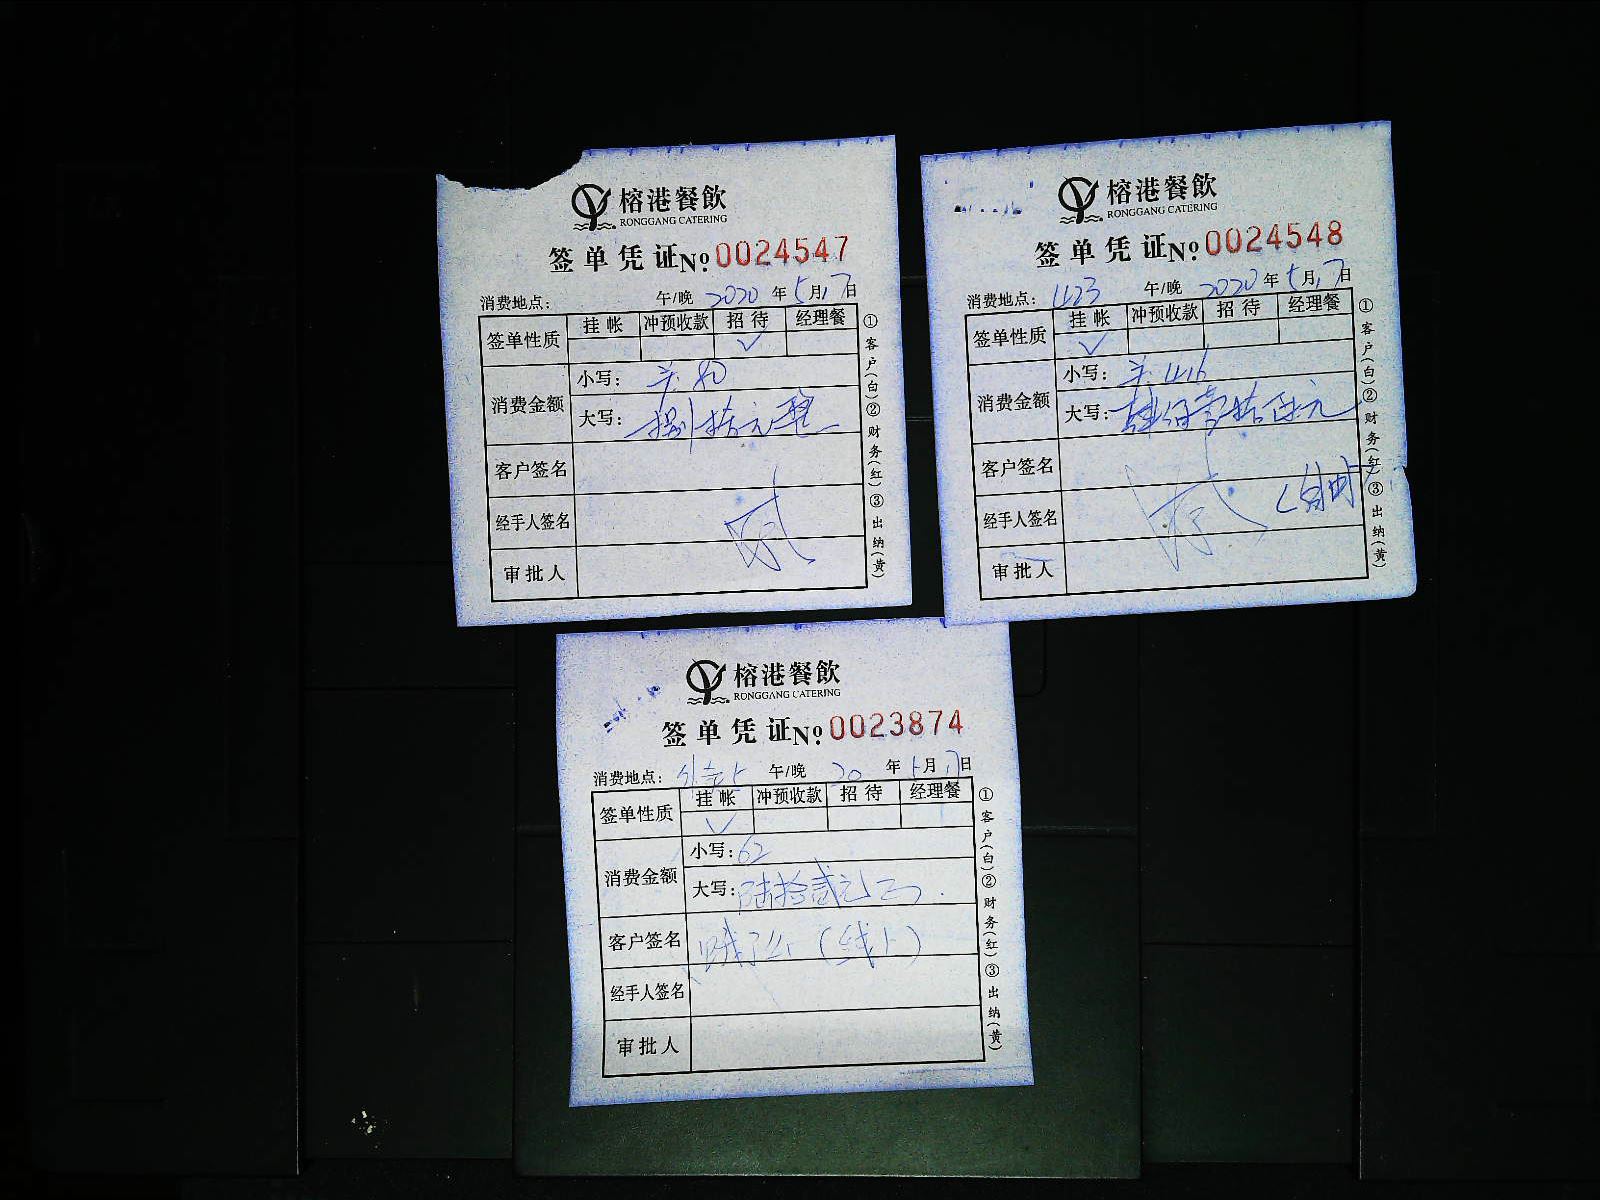 榕港餐飲
RONGGANG CATERING
签单凭证No 0024547
消费地点: 午/晚 2020年5月17日
签单性质 挂帐 冲预收款 招待 经理餐
✓
消费金额 小写: 80
大写: 捌拾元整
客户签名
经手人签名
审批人
①客户(白)②财务(红)③出纳(黄)
榕港餐飲
RONGGANG CATERING
签单凭证No 0024548
消费地点: 1123 午/晚 2020年5月17日
签单性质 挂帐 冲预收款 招待 经理餐
✓
消费金额 小写: 416
大写: 肆佰壹拾陆元
客户签名
经手人签名
审批人
①客户(白)②财务(红)③出纳(黄)
榕港餐飲
RONGGANG CATERING
签单凭证No 0023874
消费地点: 午/晚 20年5月17日
签单性质 挂帐 冲预收款 招待 经理餐
✓
消费金额 小写: 62
大写: 陆拾贰元
客户签名 饿了么(线上)
经手人签名
审批人
①客户(白)②财务(红)③出纳(黄)